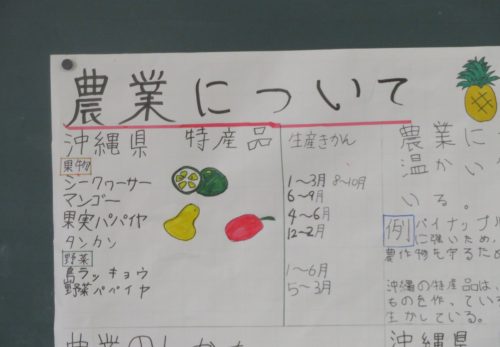 農業について
沖縄県 特産品 生産きかん
果物
シークヮーサー 1〜3月 8〜10月
マンゴー 6〜9月
果実パパイヤ 4〜6月
タンカン 12〜2月
野菜
島ラッキョウ 1〜6月
野菜パパイヤ 5〜3月
農業に
温かい
いる。
例 パイナップル
に強いため、
農作物を守るため
沖縄の特産品は、
ものを作ってい
生かしている。
沖縄県